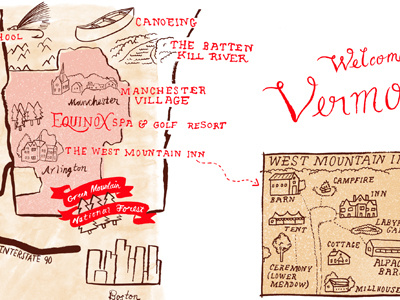 HOOL
CANOEING
THE BATTEN
KILL RIVER
Manchester
MANCHESTER
VILLAGE
EQUINOX SPA & GOLF RESORT
THE WEST MOUNTAIN INN
Arlington
Green Mountain
National Forest
INTERSTATE 90
Boston
Welcome
Vermo
WEST MOUNTAIN I
BARN
CAMPFIRE
INN
TENT
LABY
GA
COTTAGE
ALPAC
BAR
CEREMONY
(LOWER
MEADOW)
MILLHOUSE